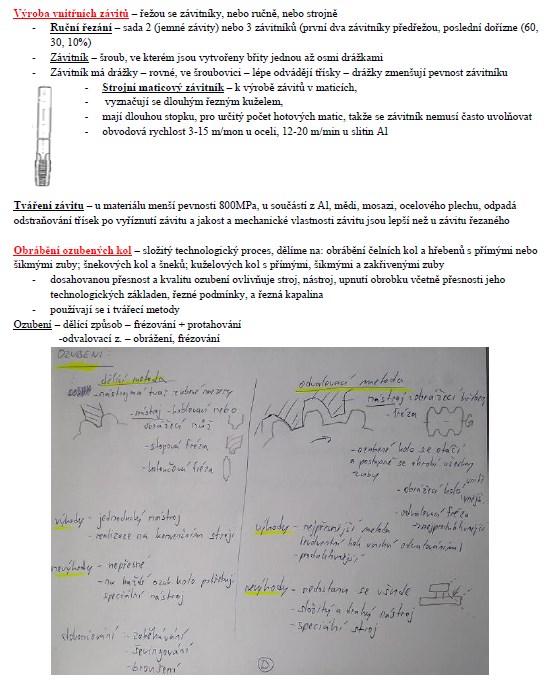 Výroba vnitřních závitů – řežou se závitníky, nebo ručně, nebo strojně
- Ruční řezání – sada 2 (jemné závity) nebo 3 závitníků (první dva závitníky předřežou, poslední dořízne (60, 30, 10%)
- Závitník – šroub, ve kterém jsou vytvořeny břity jednou až osmi drážkami
- Závitník má drážky – rovné, ve šroubovici – lépe odvádějí třísky – drážky zmenšují pevnost závitníku
- Strojní maticový závitník – k výrobě závitů v maticích,
- vyznačují se dlouhým řezným kuželem,
- mají dlouhou stopku, pro určitý počet hotových matic, takže se závitník nemusí často uvolňovat
- obvodová rychlost 3-15 m/mon u oceli, 12-20 m/min u slitin Al
Tváření závitu – u materiálu menší pevnosti 800MPa, u součástí z Al, mědi, mosazi, ocelového plechu, odpadá
odstraňování třísek po vyříznutí závitu a jakost a mechanické vlastnosti závitu jsou lepší než u závitu řezaného
Obrábění ozubených kol – složitý technologický proces, dělíme na: obrábění čelních kol a hřebenů s přímými nebo
šikmými zuby; šnekových kol a šneků; kuželových kol s přímými, šikmými a zakřivenými zuby
- dosahovanou přesnost a kvalitu ozubení ovlivňuje stroj, nástroj, upnutí obrobku včetně přesnosti jeho
technologických základen, řezné podmínky, a řezná kapalina
- používají se i tvářecí metody
Ozubení – dělící způsob – frézování + protahování
-odvalovací z. – obrážení, frézování
OZUBENÍ:
dělící metoda
- nástroj má tvar zubové mezery
- nástroj - hoblovací nebo
obrážecí nůž
- stopová fréza
- kotoučová fréza
výhody - jednoduchý nástroj
- realizace na konvenčním stroji
nevýhody - nepřesné
- na každé ozub. kolo potřebuji
speciální nástroj
dokončování - zaběhávání
- ševingování
- broušení
odvalovací metoda
nástroj - obrážecí hřeben
- fréza
- ozubené kolo se otáčí
a postupně se obrobí všechny
zuby
- obrážecí kolo vnitř.
vnější
- odvalovací fréza
- nejproduktivnější
výhody - nejpřesnější metoda
- produktivnější
nevýhody - nedostanu se všude
- složitý a drahý nástroj
- speciální stroj